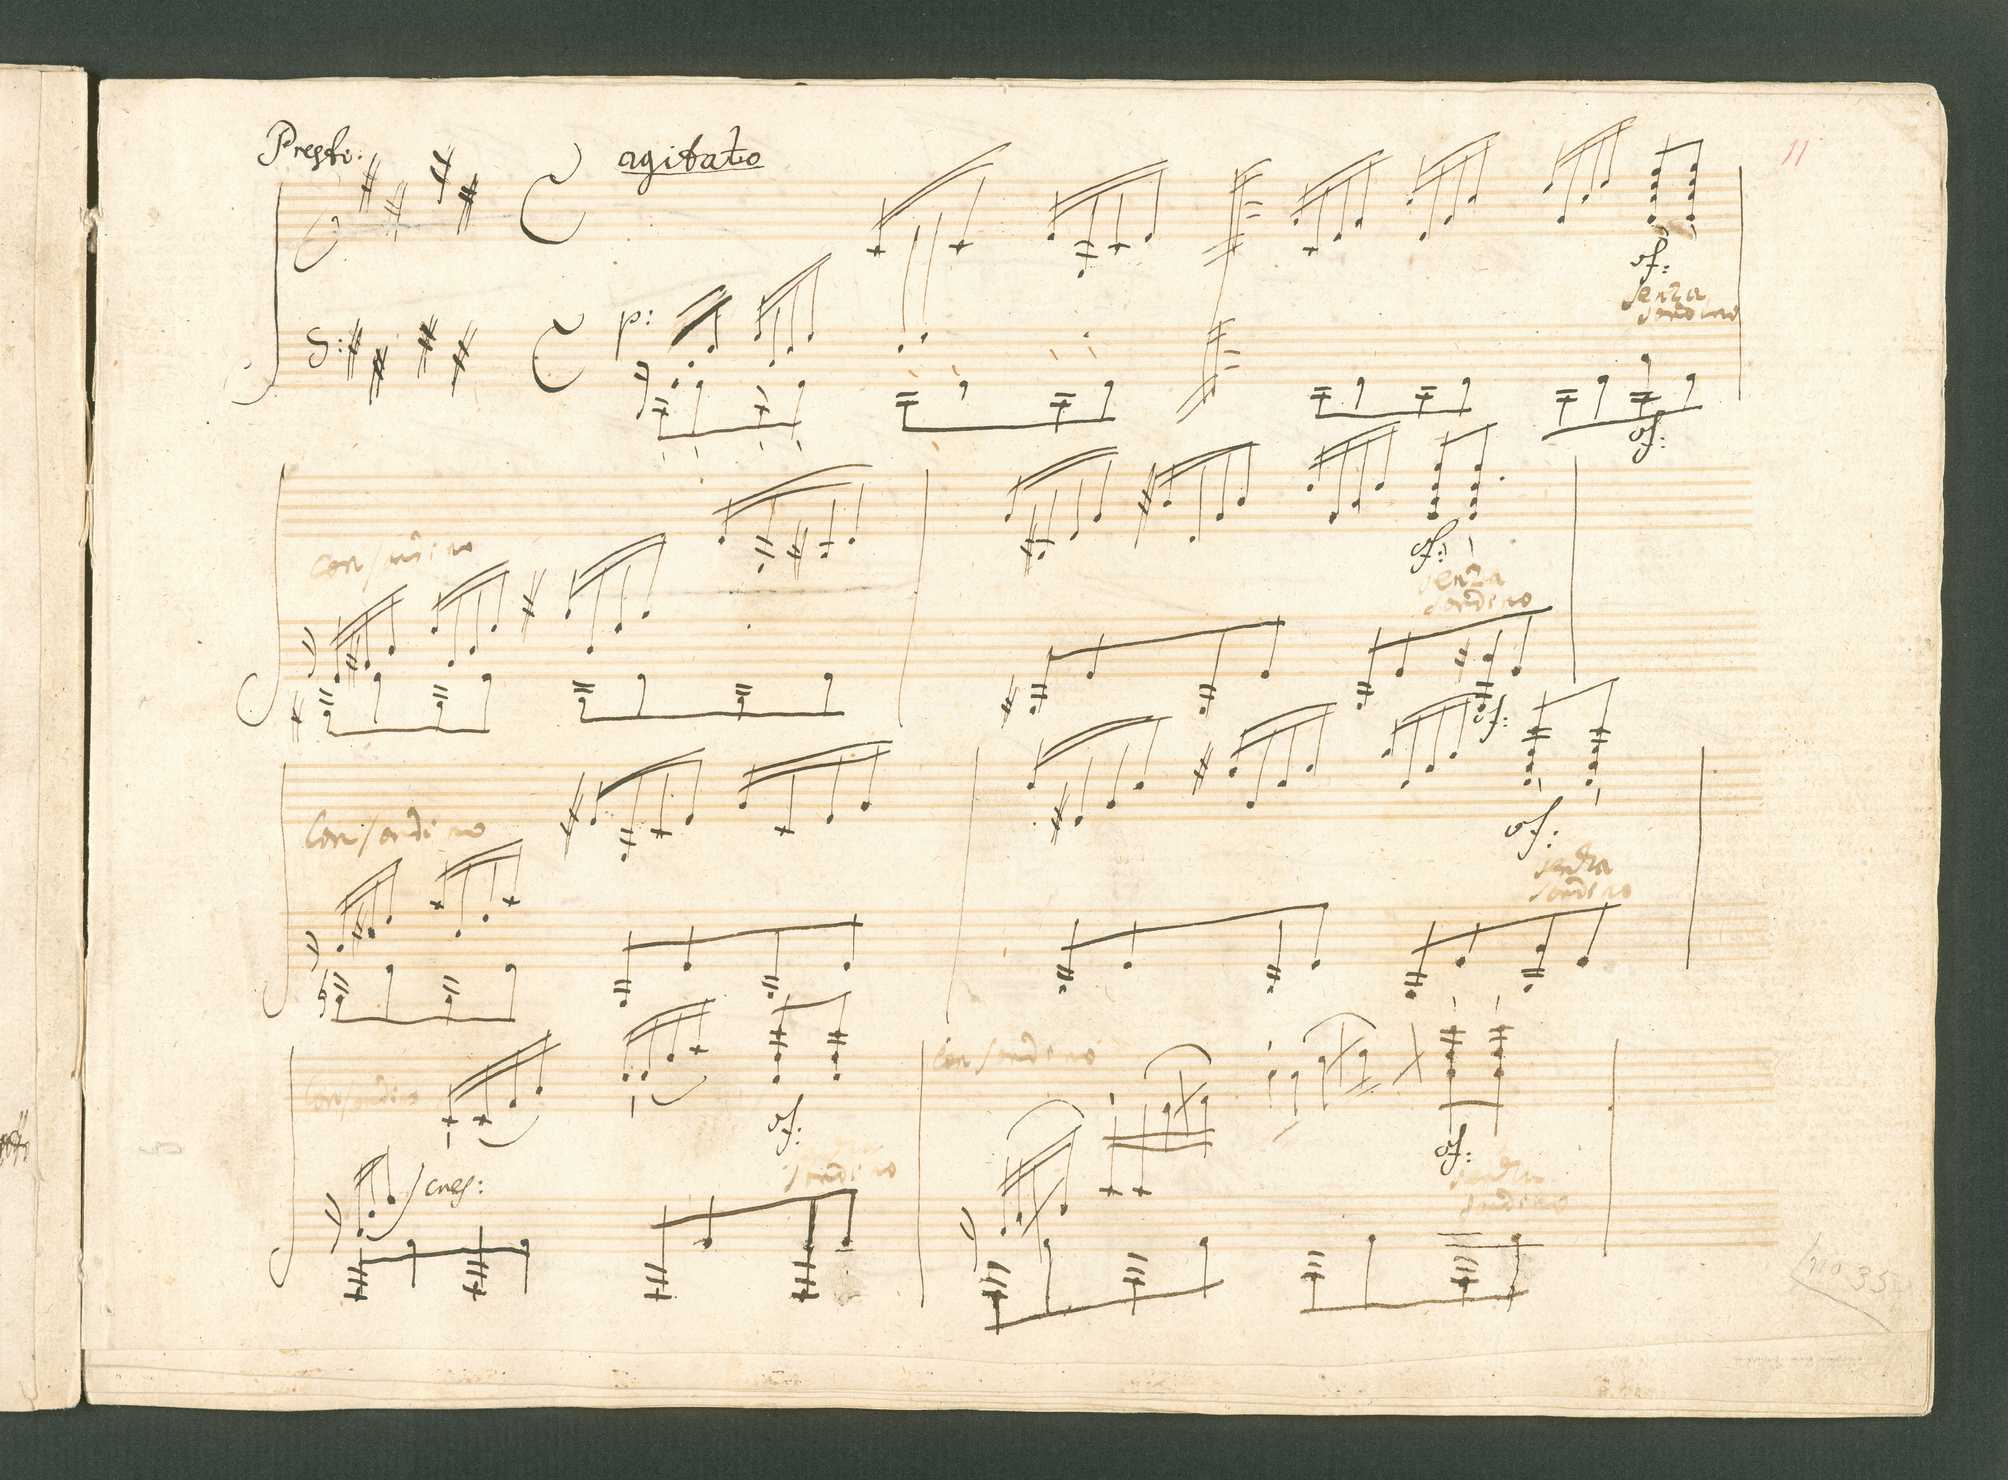 Presto: agitato
11
p:
sf:
senza
sordino
sf:
con sordino
sf:
senza
sordino
sf:
Con sordino
sf:
senza
sordino
Con sordino
Con sordino
cres:
sf:
sordino
sf:
senza
sordino
no 35